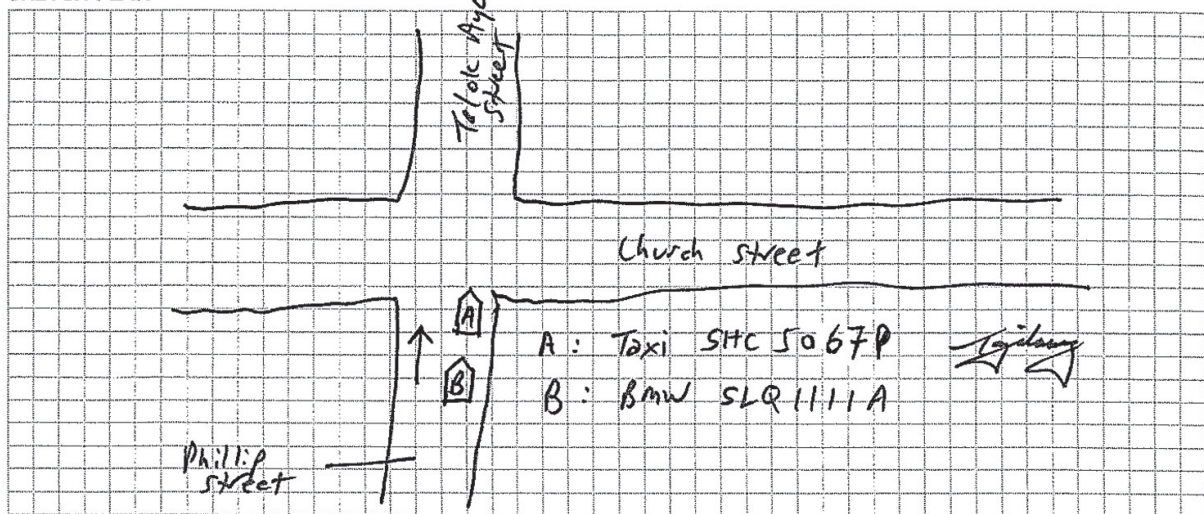 Telok Aye
Street
Church street
A
A : Taxi SHC 5067P
B
B : BMW SLQ1111A
Phillip
street